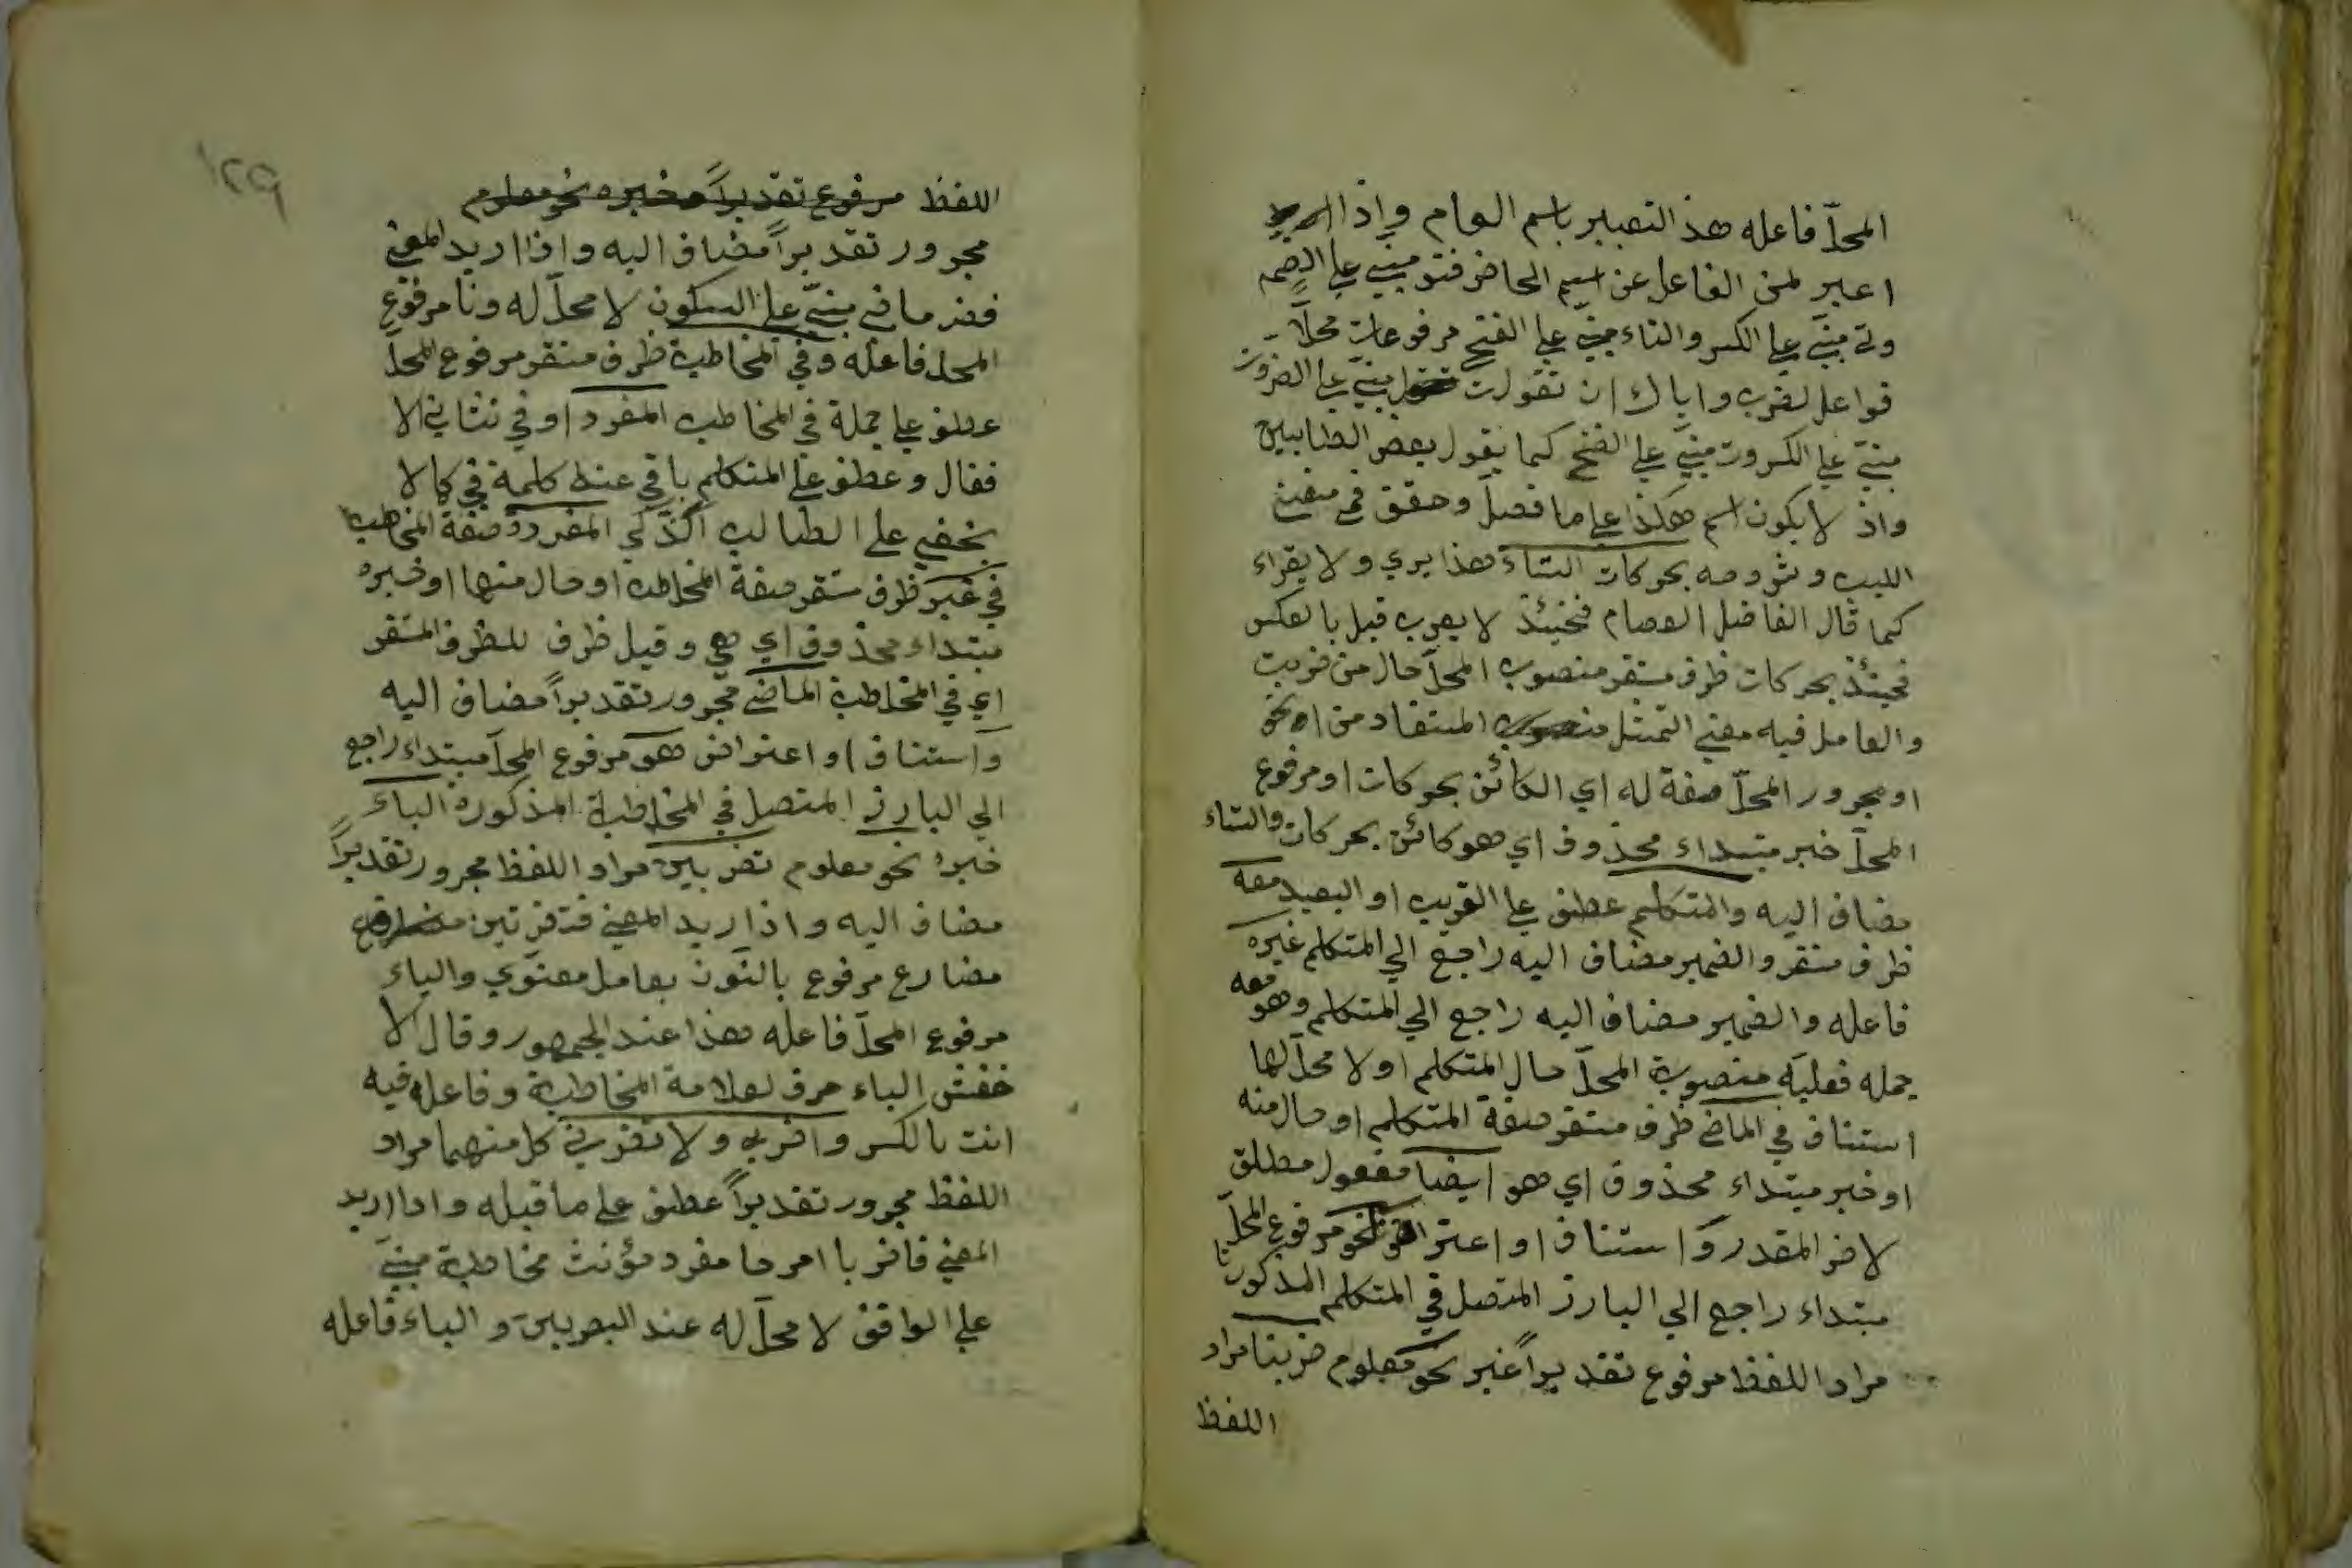 المحلّ فاعله هذ التعبير باسم العام وإذا اريد
اعبر لمن الفاعل عن اسم الحاضر فتو مبني على الضم
وتِ مبنيّ على الكسر والتاء مبنيّ على الفتح مرفوعات محلّا
فواعل لضرب واياك ان تقول ت مبنيّ على الضروت
مبنيّ على الكسر وت مبنيّ على الفتح كما يقول بعض الطالبين
واذ لا يكون اسم هكذا على ما فصل وحقق في مغني
اللبيب وشروحه بحركات التاء هذا يري ولا يقراء
كما قال الفاضل العصام فحينئذ لا يعرب قيل بالعكس
فحينئذ بحركات ظرف مستقر منصوب المحلّ حال من ضربت
والعامل فيه معني التمثل المستفاد من نحو
او مجرور المحلّ صفة له اي الكائن بحركات او مرفوع
المحلّ خبر مبتداء محذوف اي هو كائن بحركات والتاء
مضاف اليه والمتكلم عطف على القريب او البعيد معه
ظرف مستقر والضمير مضاف اليه راجع الي المتكلم غيره
فاعله والضمير مضاف اليه راجع الي المتكلم وهو معه
جمله فعليّه منصوبة المحلّ حال المتكلم او لا محلّ لها
استناف في الماضي ظرف مستقر صفة المتكلم او حال منه
او خبر مبتداء محذوف اي هو ايضا مفعول مطلق
لاض المقدر وَ استناف او اعتراض نحو مرفوع المحلّ
مبتداء راجع الي البارز المتصل في المتكلم المذكور نا
مراد اللفظ مرفوع تقديراً خبر نحو معلوم ضربنا مراد
اللفظ
١٢٩
اللفظ مرفوع تقديراً وخبره نحو معلوم
مجرور تقديراً مضاف اليه واذا اريد المعني
فضر ماضي مبنيّ على السكون لا محلّ له ونا مرفوع
المحل فاعله وفي المخاطبة ظرف مستقر مرفوع المحلّ
عطف على جملة في المخاطب المفرد او في نشاني الا
فقال وعطف على المتكلم باقي عند كلمة في كالا
يخفي على الطالب الذّكي المفردة صفة المخاطبة
في غير ظرف مستقر صفة المخاطبه او حال منها او خبره
مبتداء محذوف اي هي وقيل ظرف للظرف المستقر
اي في المخاطبة الماضي مجرور تقديراً مضاف اليه
وَاستناف او اعتراض هو مرفوع المحلّ مبتداء راجع
الي البارز المتصل في المخاطبة المذكورة الياء
خبره نحو معلوم تضربين مراد اللفظ مجرور تقديراً
مضاف اليه واذا اريد المعني فتضربين
مضارع مرفوع بالنّون بعامل معنوي والياء
مرفوع المحلّ فاعله هذا عند الجمهور وقال الا
خفش الياء حرف لعلامة المخاطبة وفاعله فيه
انت بالكسر واضربي ولا تضربي كل منهما مراد
اللفظ مجرور تقديراً عطف على ما قبله واذا اريد
المعني فاضربا امر حا مفرد مؤنث مخاطبة مبنيّ
على الواقف لا محلّ له عند البصريين والياء فاعله